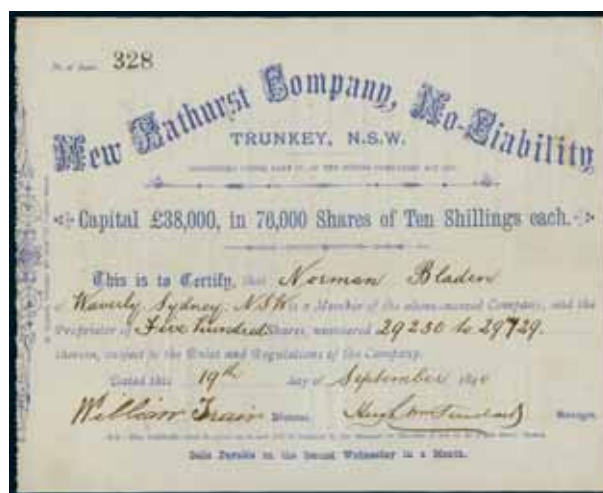 No. of Shares 328
New Bathurst Company, No-Liability
TRUNKEY, N.S.W.
Capital £38,000, in 76,000 Shares of Ten Shillings each.
This is to Certify, that Norman Bladen
of Waverly Sydney N.S.W is a Member of the above-named Company, and the
Proprietor of Five hundred Shares, numbered 29230 to 29729.
therein, subject to the Rules and Regulations of the Company.
Dated this 19th day of September
William Train Director. Manager.
Calls Payable on the Second Wednesday in a Month.